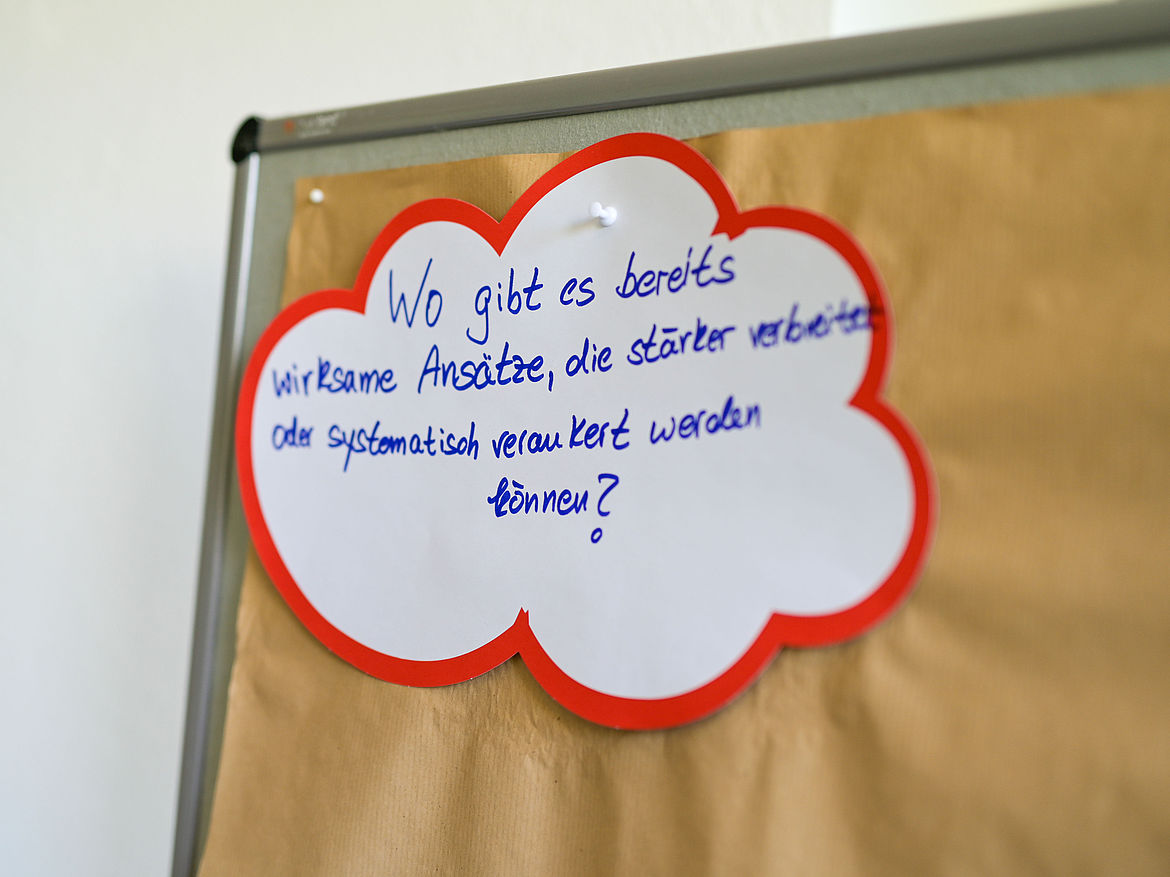 Wo gibt es bereits
wirksame Ansätze, die stärker verbreitet
oder systematisch verankert werden
können?